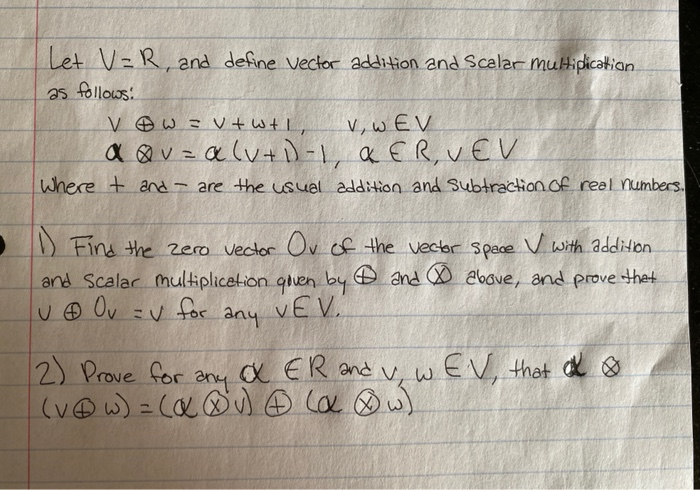 Let V=R, and define vector addition and Scalar multiplication
as follows:
V ⊕ w = v+w+1, v, w ∈ V
α ⊗ v = α(v+1)-1, α ∈ R, v ∈ V
Where + and - are the usual addition and subtraction of real numbers.
1) Find the zero vector Ov of the vector space V with addition
and Scalar multiplication given by ⊕ and ⊗ above, and prove that
v ⊕ Ov = v for any v ∈ V.
2) Prove for any α ∈ R and v, w ∈ V, that α ⊗
(v ⊕ w) = (α ⊗ v) ⊕ (α ⊗ w)